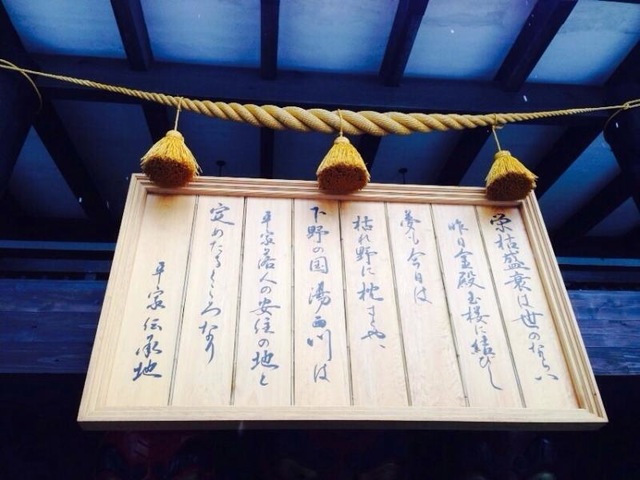 栄枯盛衰は世のならい
昨日金殿玉楼に結びし
夢も今日は
枯れ野に枕すとや
下野の国湯西川は
平家落人の安住の地と
定めたるところなり
平家伝承地